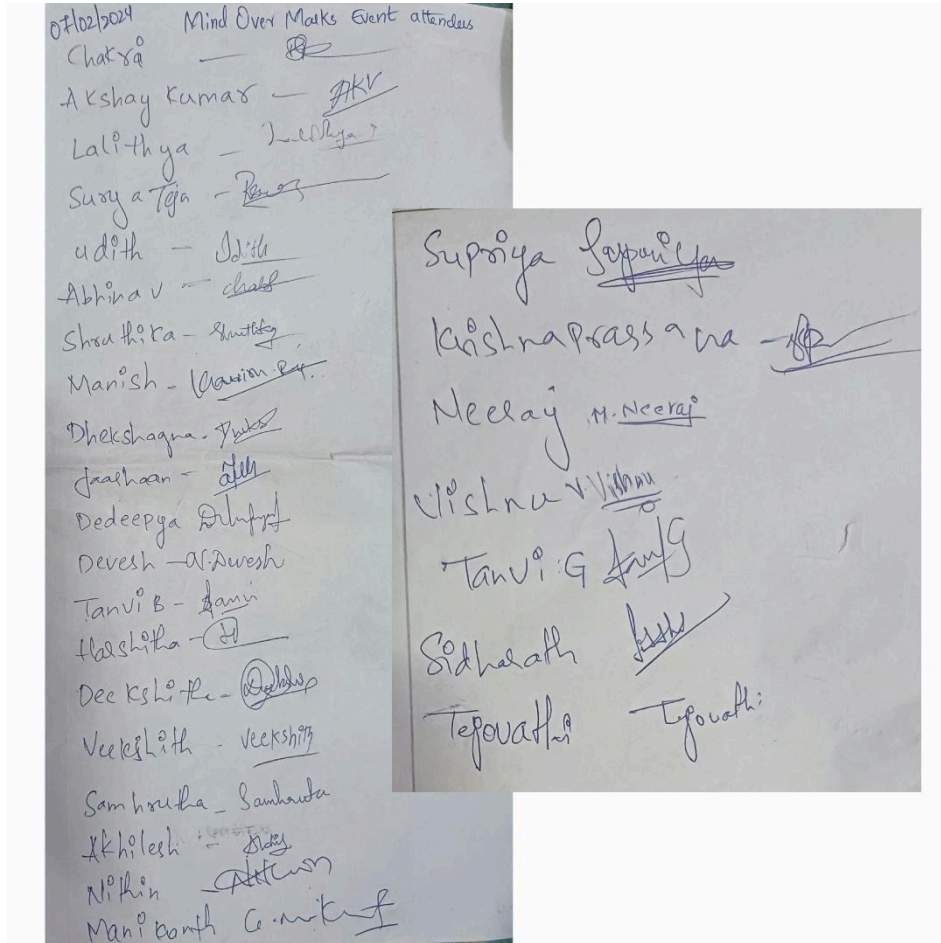 07/02/2024 Mind Over Marks Event attendees
Chakra
Akshay Kumar - AKV
Lalithya -
Surya Teja -
Udith - Udith
Abhinav -
Shruthika - Shruthika
Manish -
Dhekshagna -
Jaashaan -
Dedeepya
Devesh - N. Devesh
Tanvi B - Tanvi
Harshitha - H
Deekshitha -
Veekshith - Veekshith
Samhrutha - Samhruta
Akhilesh -
Nithin -
Manikanth
Supriya
Krishnaprassana -
Neeraj M. Neeraj
Vishnu V. Vishnu
Tanvi. G
Sidharath
Tejovathi Tejovathi